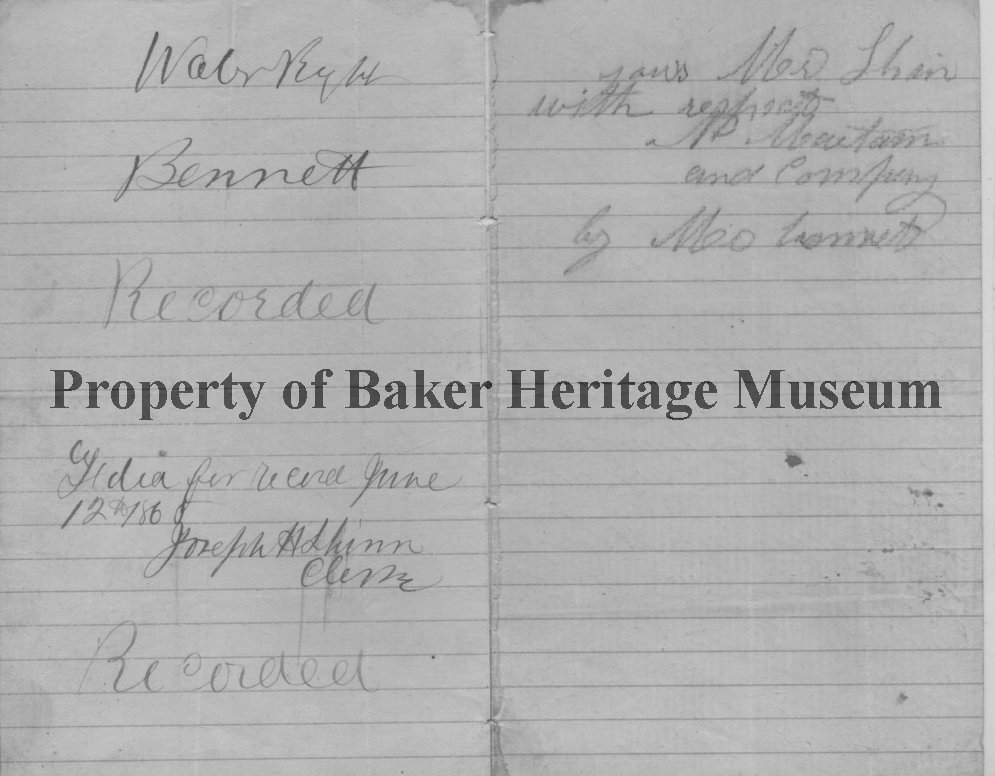 Water Right
Bennett
Recorded
Property of Baker Heritage Museum
Fildia for record June
12th 186
Joseph H Shinn
Clerk
Recorded
yours Mr Shin
with respects
and Company
by